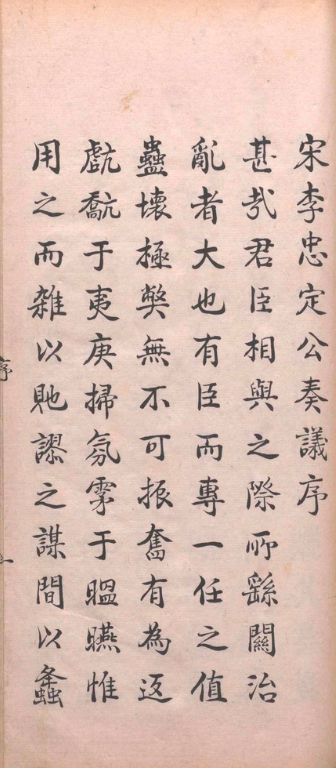 宋李忠定公奏議序
甚哉君臣相與之際所繇關治
亂者大也有臣而專一任之值
蠱壞極獘無不可振奮有為返
于夷庚掃氛雺于㬈曣惟
用之而雜以貤謬之謀間以蟊
序